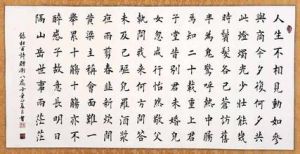 人生不相見動如參
與商今夕復何夕共
此燈燭光少壯能幾
時鬢髮各已蒼訪舊
半為鬼驚呼熱中腸
焉知二十載重上君
子堂昔別君未婚兒
女忽成行怡然敬父
執問我來何方問答
未及已驅兒羅酒漿
夜雨剪春韭新炊間
黃粱主稱會面難一
舉累十觴十觴亦不
醉感子故意長明日
隔山岳世事兩茫茫
錄杜甫詩贈衛八處士